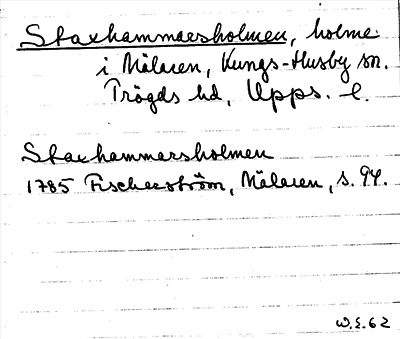 Staxhammarsholmen, holme
i Mälaren, Kungs-Husby sn.
Trögds hd, Upps. l.
Staxhammarsholmen
1785 Fischerström, Mälaren, s. 94.
W.E.62